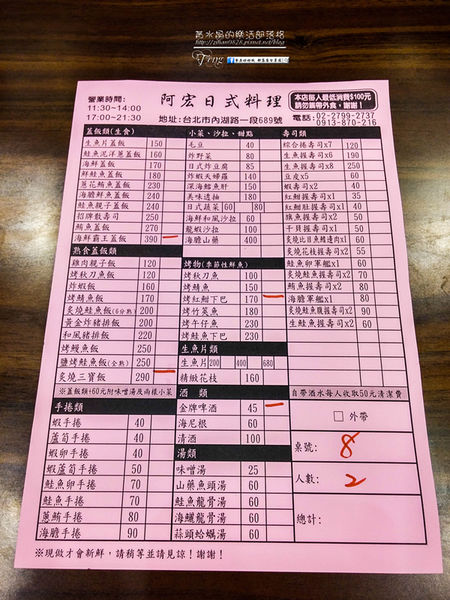 黃水晶的樂活部落格
營業時間:
11:30~14:00
17:00~21:30
阿宏日式料理
地址:台北市內湖路一段689號
本店每人最低消費$100元
請勿攜帶外食,謝謝!
電話:02-2799-2737
0913-870-216
蓋飯類(生食)
生魚片蓋飯 150
鮭魚泥洋蔥蓋飯 160
海鮮蓋飯 170
鮮鮭魚蓋飯 180
蔥花鮪魚蓋飯 230
海膽蓋飯 240
鮭魚親子蓋飯 240
招牌散壽司 250
鮪魚蓋飯 270
海鮮霸王蓋飯 390
熟食蓋飯類
雞肉親子飯 120
烤秋刀魚飯 120
炸蝦飯 160
烤鯖魚飯 170
炙燒鮭魚飯(6分熟) 200
黃金炸豬排飯 200
和風豬排飯 220
烤鰻魚飯 250
鹽烤鮭魚飯(全熟) 250
炙燒三寶飯 290
※蓋飯類+60元附味噌湯及兩樣小菜
手捲類
蝦手捲 40
蘆筍手捲 40
蝦卵手捲 40
蝦蘆筍手捲 50
鮭魚卵手捲 70
鮭魚手捲 70
蔥鮪手捲 80
海膽手捲 90
小菜、沙拉、甜點
毛豆 40
炸野菜 80
日式炸豆腐 85
炸蝦天婦羅 140
深海鱈魚肝 150
美味透抽 180
日式蔬菜 60 80
海鮮和風沙拉 60
龍蝦沙拉 100
海膽山藥 400
烤物(季節性鮮魚)
烤秋刀魚 100
烤鯖魚 150
烤紅魽下巴 170
烤竹筴魚 180
烤午仔魚 230
烤鮭魚下巴 230
生魚片類
生魚片 200 400 680
精緻花枝 160
酒類
金牌啤酒 45
海尼根 60
清酒 100
湯類
味噌湯 25
山藥魚頭湯 60
鮭魚龍骨湯 60
海鱺龍骨湯 60
蒜頭蛤蠣湯 60
壽司類
綜合捲壽司x7 120
生魚握壽司x6 190
生魚握壽司x8 250
豆皮x5 60
蝦壽司x2 40
紅魽握壽司x1 40
旗魚握壽司x2 50
干貝握壽司x1 50
炙燒比目魚鰭邊肉x1 60
炙燒花枝握壽司x2 55
鮭魚卵軍艦x1 60
炙燒鮭魚握壽司x2 70
鮪魚握壽司x2 70
海膽軍艦x1 80
生鮭魚握壽司x2 60
自帶酒水每人收取50元清潔費
□ 外帶
桌號: 8
人數: 2
總計:
※現做才會新鮮,請稍等並請見諒!謝謝!